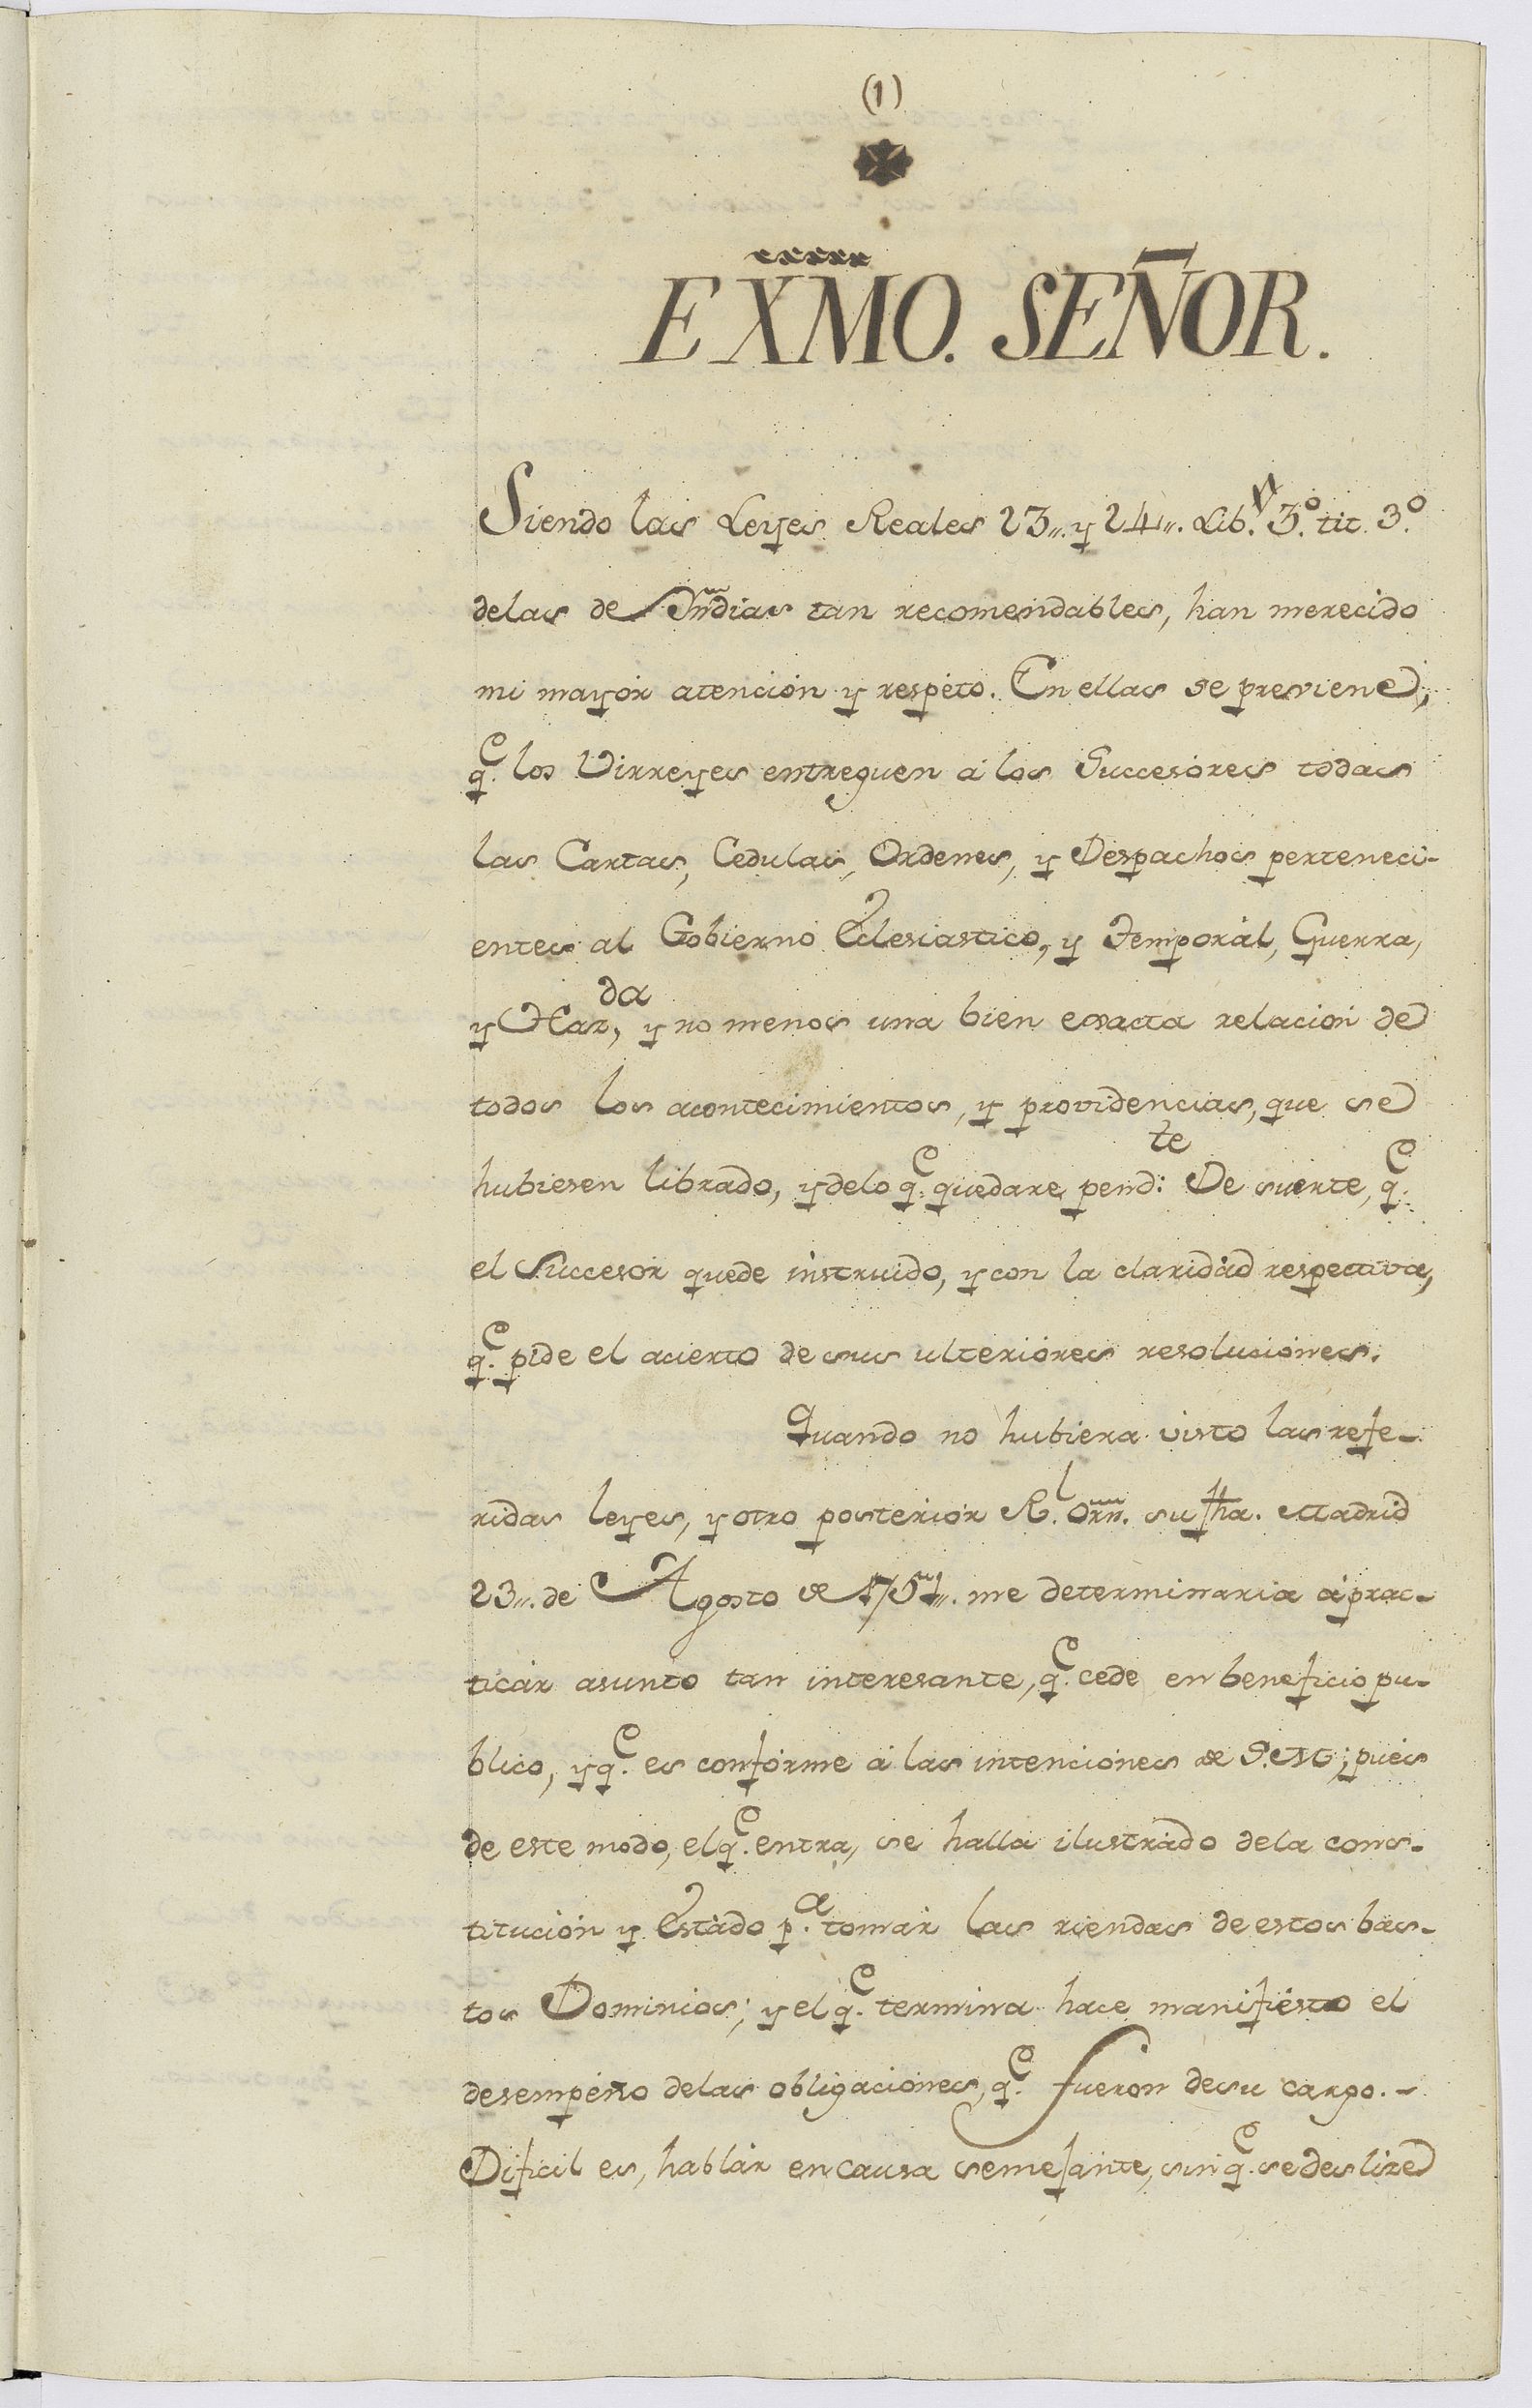 (1)
EXMO. SEÑOR.
Siendo las Leyes Reales 23,,. y 24,,. Lib.º 3.º tit. 3.º
delas de Yndias tan recomendables, han merecido
mi mayór atención y respéto. En ellas se previene,
q.e los Virreyes entreguen á los Succesóres todas
las Cartas, Cedulas, Ordenes, y Despachos perteneci-
entes al Gobierno Eclesiastico, y Temporál, Guerra,
y Haz.da, y no menos una bien exacta relación de
todos los acontecimientos, y providencias, que se
hubiesen librado, y delo q.e quedare pend.te De suerte, q.e
el Succesor quede instruido, y con la claridád respectiva,
q.e pide el acierto de sus ulterióres resoluciónes.
Quando no hubiera visto las refe-
ridas leyes, y otro posteriór R.l Orn. su fha. Madrid
23,,. de Agosto de 1751,,. me determinaria á prac-
ticár asunto tan interesante, q.e cede en beneficio pu-
blico, y q.e es confórme á las intenciónes de S.M; pués
de este modo, el q.e entra, se halla ilustrado dela cons-
titución y Estádo p.a tomár las riendas de estos bas-
tos Dominios; y el q.e termina hace manifiésto el
desempéño delas obligaciónes, q.e fueron desu cargo.-
Dificil es, hablár en causa semejante, sin q.e se deslize